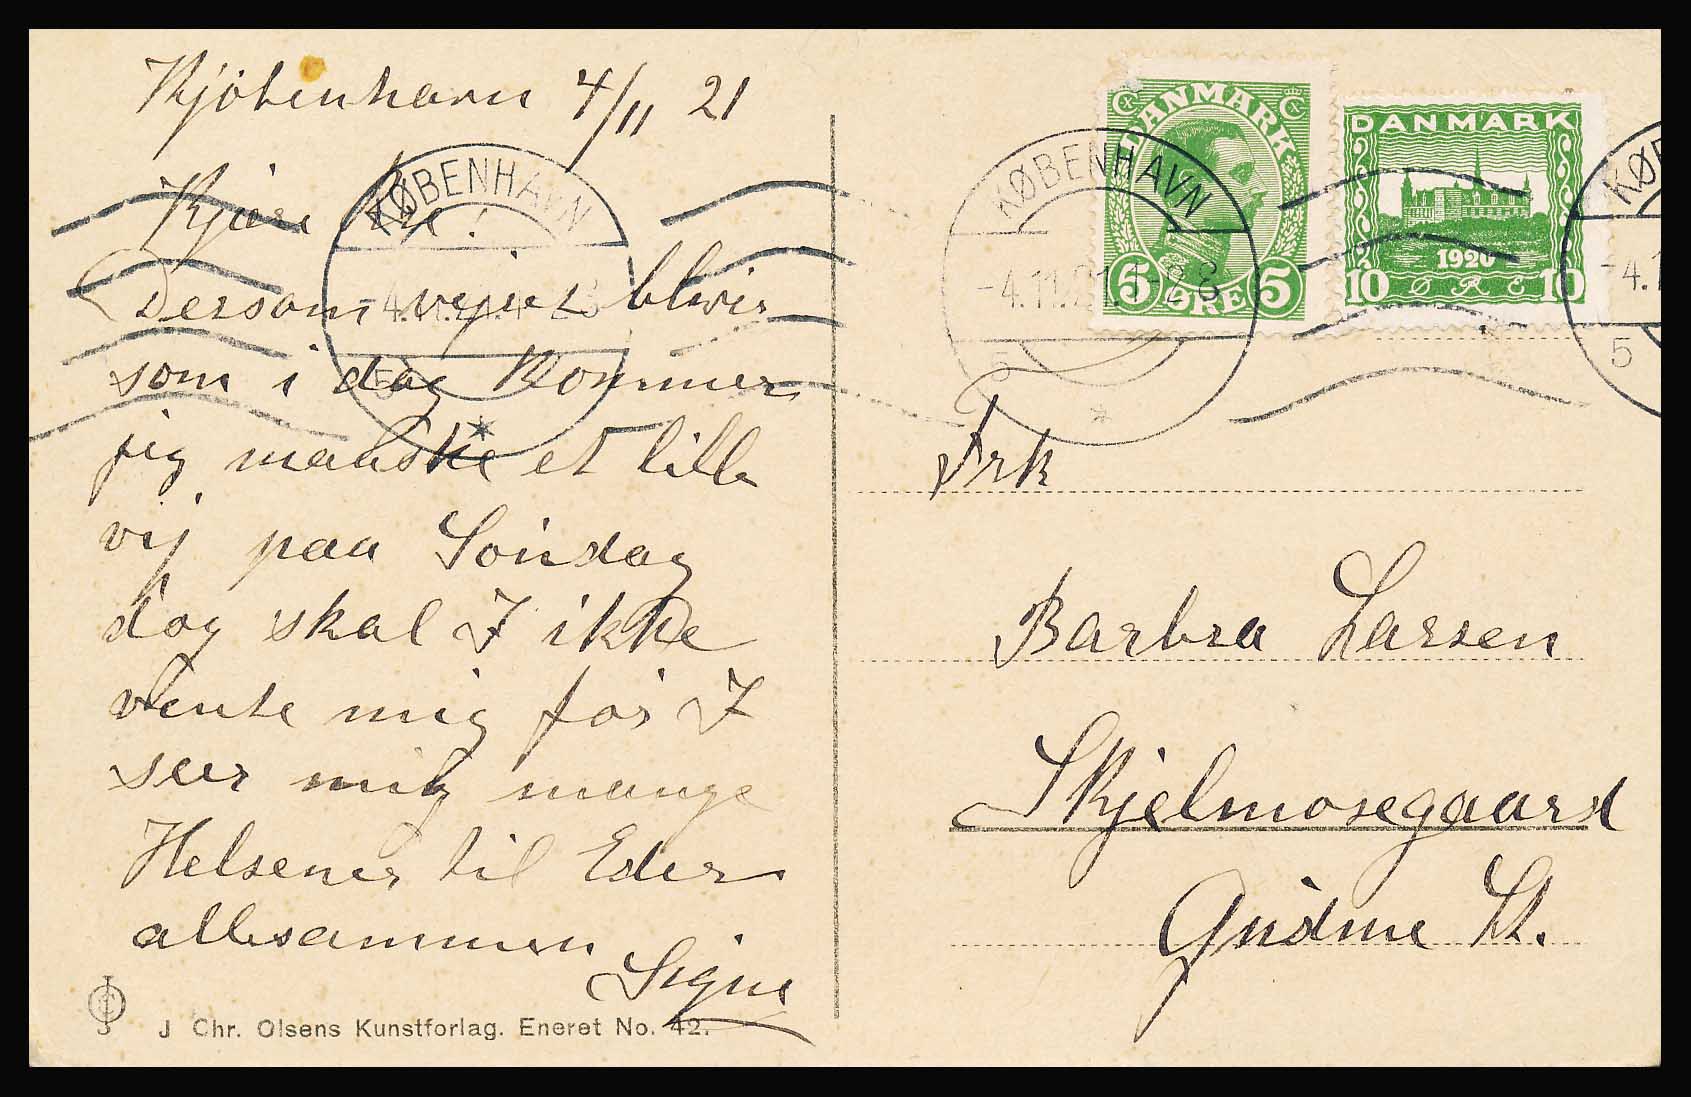 Kjöbenhavn 4/11 21
Kjære !
Dersom vejret bliver
som i dag Kommer
jeg maaske et lille
vij paa Søndag
dog skal I ikke
vente mig før I
seer mig mange
Helsener til Eder
allesammen
Signe
J Chr. Olsens Kunstforlag. Eneret No. 42.
KØBENHAVN
-4.11.21.1-2 S
5
DANMARK
5 ØRE 5
DANMARK
1920
10 ØRE 10
KØBENHAVN
-4.11.21.1-2 S
5
KØB
-4.1
5
Frk
Barbra Larsen
Skjelmosegaard
Gudme St.